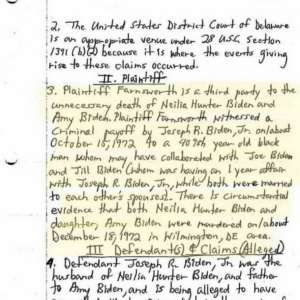 2. The United States District Court of Delaware
is an appropriate venue under 28 U.S.C. Section
1391 (b)(2) because it is where the events giving
rise to these claims occurred.
II. Plaintiff
3. Plaintiff Farnsworth is a third party to the
unnecessary death of Neilia Hunter Biden and
Amy Biden. Plaintiff Farnsworth witnessed a
Criminal payoff by Joseph R. Biden, Jr. on/about
October 15, 1972 to a 40 year old black
man whom may have collaborated with Joe Biden
and Jill Biden (whom was having an 1 year affair
with Joseph R. Biden, Jr., while both were married
to each other's spouses). There is circumstantial
evidence that both Neilia Hunter Biden and
daughter, Amy Biden were murdered on/about
December 18, 1972 in Wilmington, DE area.
III Defendant(s) & Claims (Alleged)
4. Defendant Joseph R. Biden, Jr. was the
husband of Neilia Hunter Biden, and father
to Amy Biden, and is being alleged to have